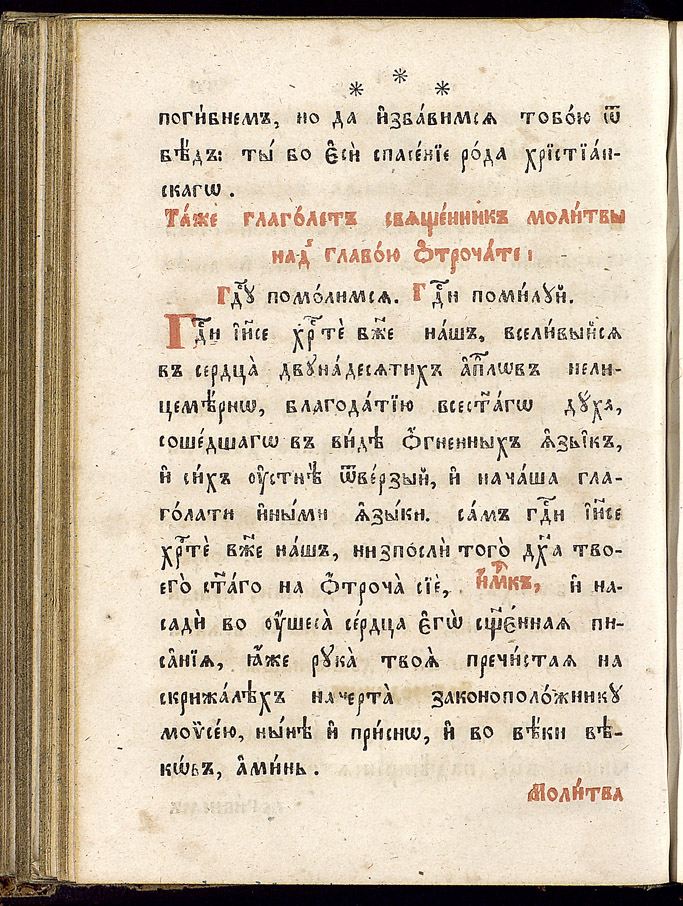 * * *
поги́бнемъ, но да и҆зба́вимсѧ тобо́ю ѿ
бѣ́дъ: ты́ бо є҆сѝ спасе́нїе ро́да хрїстїа́н-
скагѡ.
Та́же глаго́летъ свѧще́нникъ моли́твы
над̾ главо́ю ѻ҆троча́те:
Гдⷭ҇у помо́лимсѧ. Гдⷭ҇и поми́луй.
Гдⷭ҇и і҆и҃се хрⷭ҇тѐ бж҃е на́шъ, всели́выйсѧ
въ сердца̀ двꙋна́десѧтихъ а҆пⷭ҇лѡвъ нели-
цемѣ́рнѡ, благода́тїю всест҃а́гѡ дꙋ́ха,
соше́дшагѡ въ ви́дѣ ѻ҆́гненныхъ ѧ҆зы̑къ,
и҆ си́хъ ᲂу҆стнѣ̀ ѿве́рзый, и҆ нача́ша гла-
го́лати и҆ны́ми ѧ҆зы́ки. са́мъ гдⷭ҇и і҆и҃се
хрⷭ҇тѐ бж҃е на́шъ, низпослѝ того̀ дх҃а тво-
его̀ ст҃а́го на ѻ҆троча̀ сїѐ, и҆́м̾къ, и҆ на-
садѝ во ᲂу҆шеса̀ се́рдца є҆гѡ̀ сщ҃е́нная пи-
са̑нїѧ, ꙗ҆̀же рꙋка̀ твоѧ̀ пречи́стая на
скрижа́лѣхъ начерта̀ законополо́жникꙋ
моѷсе́ю, ны́нѣ и҆ при́снѡ, и҆ во вѣ́ки вѣ-
кѡ́въ, а҆ми́нь.
Моли́тва